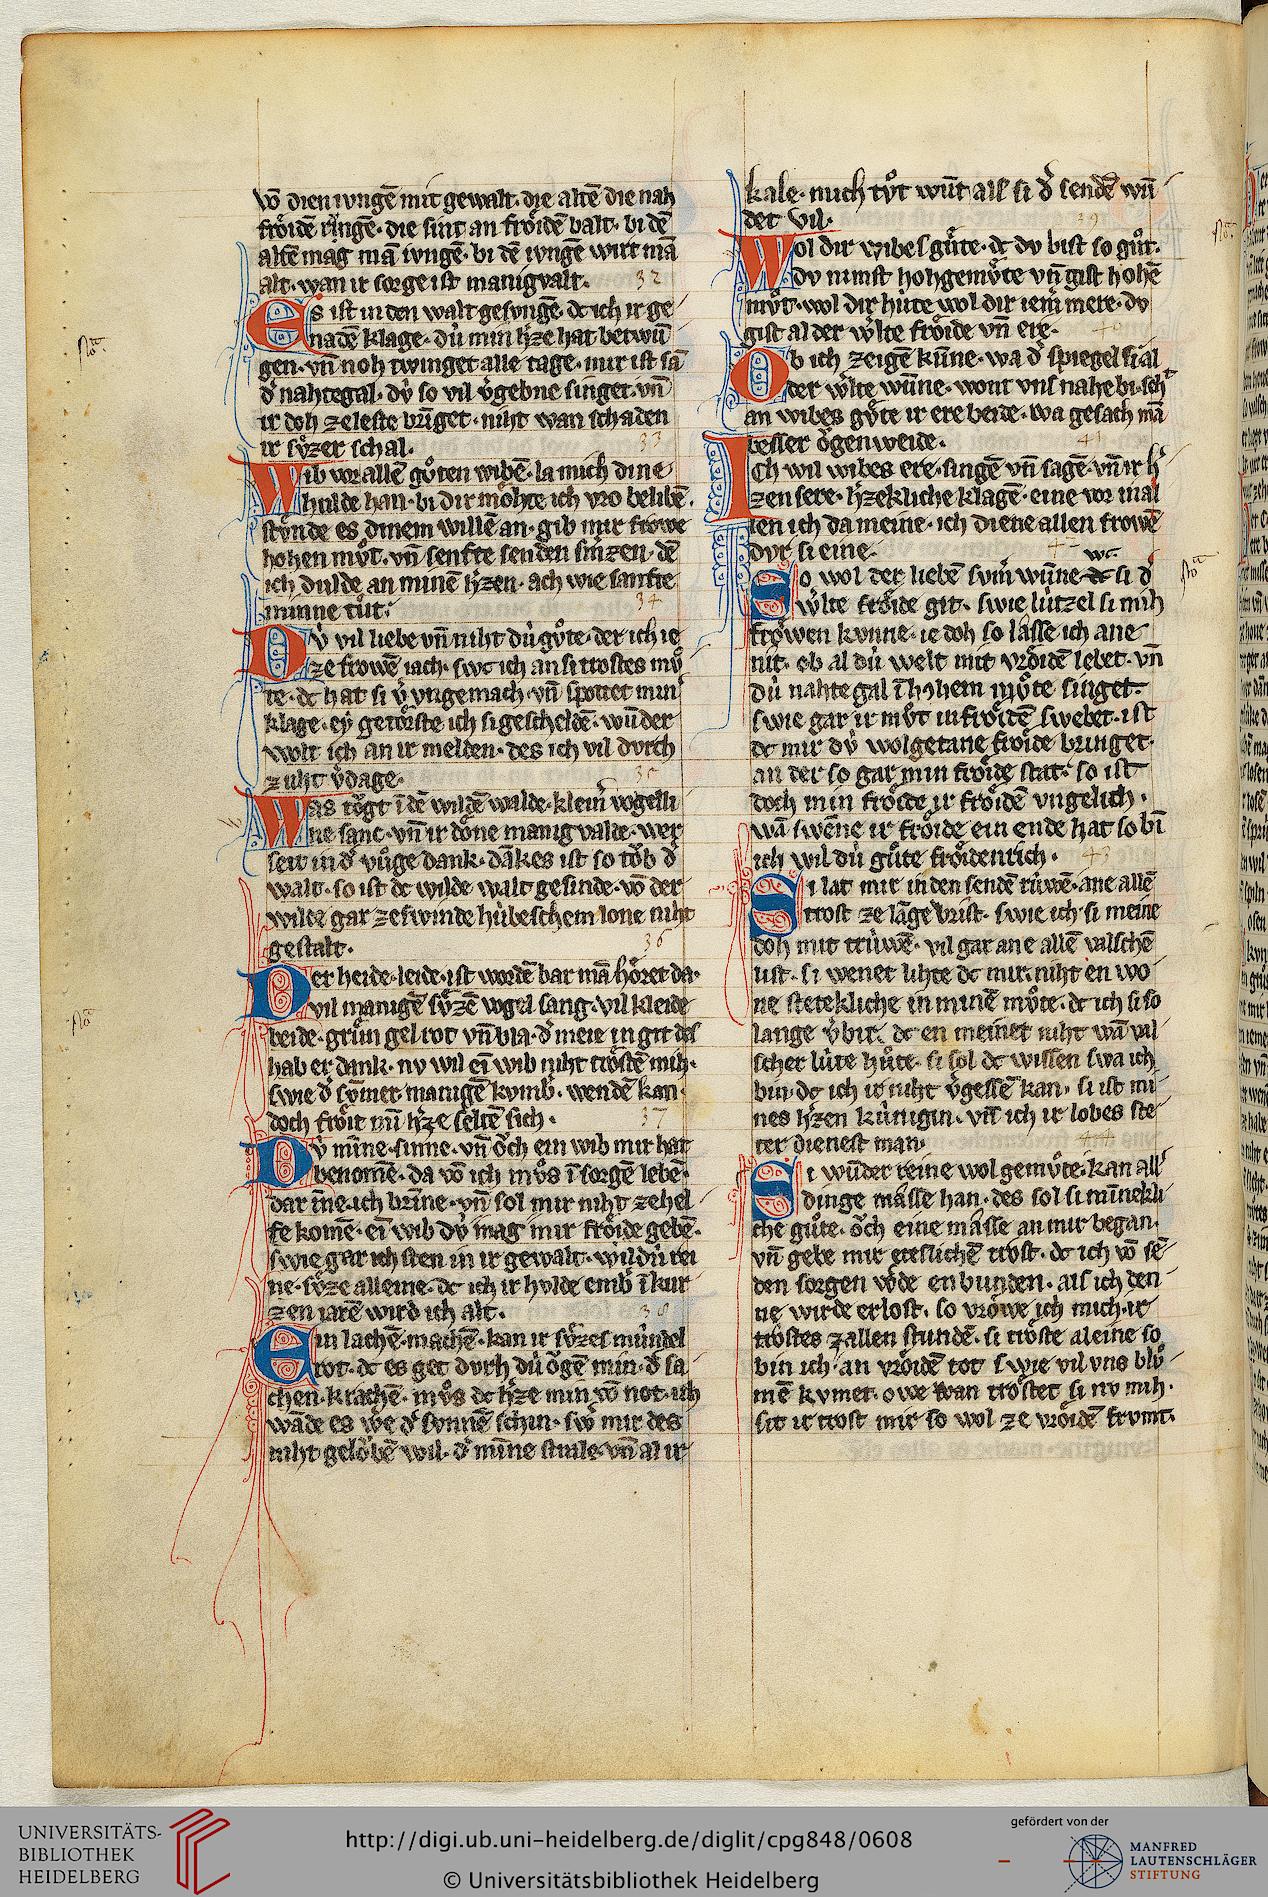 vō dien iungē mit gewalt· die altē die nah
froͤidē ringē· die sint an froͤidē balt· bi dē
altē mag mā iungē· bi dē iungē wirt mā
alt· wan ir sorge ist manigvalt· 32
Es ist in den walt gesungē· dc ich ir ge-
nadē klage· dú̍ min h̾ze hat betwū-
gen· vn̄ noh twinget alle tage· mir ist sā
d̾ nahtegal· dú so vil v̾gebne singet· vn̄
ir doh zeleste bringet· niht wan schaden
ir suͤzer schal· 33
Wib vor allē guͦten wibē· la mich dine
hulde han· bi dir moͤhte ich vro belibē·
stuͤnde es dinem willē an· gib mir frowe
hohen muͦt· vn̄ senfte senden smzen· dē
ich dulde an minē h̾zen· ach wie sanfte
minne tuͦt· 34
Dú vil liebe vn̄ niht dú guͦte· der ich ie
ze frowē iach· swc ich an si trostes muͦ-
te· dc hat si v̾ ungemach· vn̄ spottet min̾
klage· ey getoͤrste ich si gescheldē· wunder
wolt ich an ir melden· des ich vil durch
zuht v̾dage· 35
Was toͮgt ī dē wildē walde· kleín̾ vogelli-
ne sanc· vn̄ ir doͤne manigvalde· wer
seit in d̾ vuͦge dank· dākes ist so toͮb d̾
walt· so ist dc wilde walt gesinde· vō der
wilde gar zeswinde húbeschem lone niht
gestalt· 36
Der heide· leide· ist wordē bar mā hoͤret da·
vil manigē suͤzē vogel sang· vil kleide
beide· gruͤn gel rot vn̄ bla· d̾ meie in git des
hab er dank· nv wil eī wib niht troͤstē mih·
swie d̾ sum̄er manigē kumb̾· wendē kan·
doch froͤit mī h̾ze seltē sich· 37
Dú min̄e· sinne· vn̄ oͮch ein wib mir hat
benomē· da vō ich muͦs ī sorgē lebē·
dar in̄e ich brīne· vn̄ sol mir niht zehel-
fe komē· eī wib dú mag mir froͤide gebē·
swie gar ich sten in ir gewalt· wil dú rei-
ne· suͤze alleine· dc ich ir hulde emb̾ ī kur-
zen iarē wird ich alt· 38
Ein lachē· machē· kan ir suͤzes mu̍ndel
rot· dc es get durh dú oͮgē min· d̾ sa-
chen· krachē· muͦs dc h̾ze min vō not· ich
wāde es we d̾ sunnē schin· swē mir des
niht geloͮbē wil· d̾ min̄e strale· vn̄ al ir
kale· mich tuͦt wūt als si d̾ sendē wū-
det vil· 39
Wol dir wibes guͤte· dc du bist so guͦt·
du nimst hohgemuͤte vn̄ gist hohē
muͦt· wol dir húte wol dir iem̄ mere· du
gist al der w̾lte froͤide vn̄ ere· 40
Ob ich zeigē kún̄e· wa d̾ spiegel si al
der w̾lte wún̄e· wont vns nahe bi· seht
an wibes guͤte ir ere beide· wa gesach mā
besser oͮgenweide· 41
Ich wil wibes ere· singē vn̄ sagē· vn̄ ir h̾-
zen sere· h̾zekliche klagē· eine vor in al-
len ich da meine· ich diene allen frowē
dur si eine· 42 wc·
So wol der liebē sum̄ wun̄e dc si d̾
w̾lte froͤide git· swie lútzel si mih
froͤwen kunne· ie doh so lasse ich ane
nit· ob al dú welt mit vroͤidē lebet· vn̄
dú nahtegal ī hohem muͦte singet·
swie gar ir muͦt in froͤidē swebet· ist
dc mir dú wolgetane froͤide bringet·
an der so gar min froͤide stat· so ist
doch min froͤide ir froͤidē vngelich·
wā swen̄e ir froͤide ein ende hat so bī
ich wil dú guͦte froͤidenrich· 43
Si lat mir in den sendē rúwē· ane allē
trost ze lāge vrist· swie ich si meine
doh mit trúwē· vil gar ane allē valschē
list· si wenet lihte dc mir niht en wo-
ne stetekliche in minē muͦte· dc ich si so
lange v̾bir· dc en meinet niht wā val-
scher lúte huͦte· si sol dc wissen swa ich
bin· dc ich ir niht v̾gessē kan· si ist mi-
nes h̾zen kúnigin· vn̄ ich ir lobes ste-
ter dienest man· 44
Si wūder reine wol gemuͦte· kan all̾
dinge masse han· des sol si minnekli-
che guͤte· oͮch eine masse an mir began·
vn̄ gebe mir etteslichē trost· dc ich vō sē-
den sorgen w̾de enbunden· als ich den-
ne wirde erlost· so vroͤwe ich mich ir
trostes zallen stundē· si troͤste aleine so
bin ich· an vroͤidē tot swie vil vns bluͦ-
mē kumet· owe wan troͤstet si nv mih·
sit ir trost mir so wol ze vroͤidē frumt·
UNIVERSITÄTS-
BIBLIOTHEK
HEIDELBERG
http://digi.ub.uni-heidelberg.de/diglit/cpg848/0608
© Universitätsbibliothek Heidelberg
gefördert von der
MANFRED
LAUTENSCHLÄGER
STIFTUNG